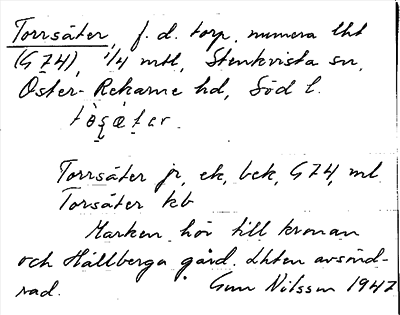 Torrsäter, f.d. torp, numera lht
(G 74), 1/4 mtl, Stenkvista sn,
Öster-Rekarne hd, Söd l.
Torrsäter jr, ek, bek, G74, ml
Torsäter kb
Marken hör till kronan
och Hällberga gård. Lhten avsönd-
rad. Gun Nilsson 1947